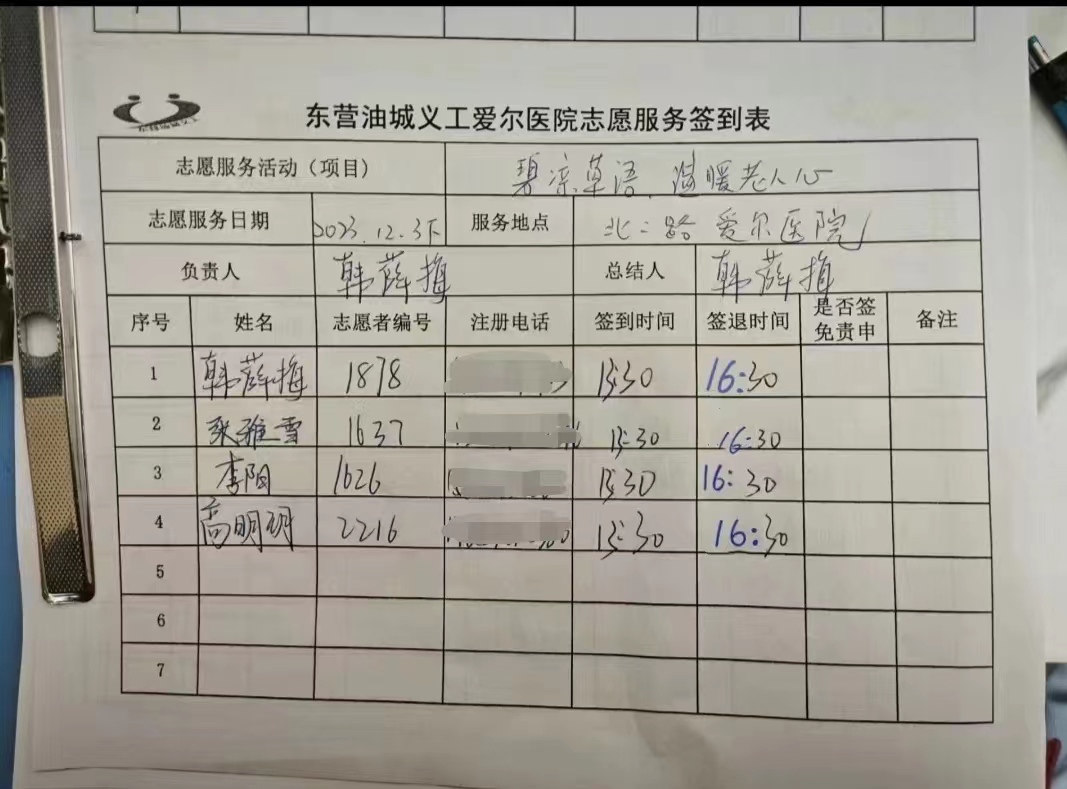 东营油城义工
东营油城义工爱尔医院志愿服务签到表
志愿服务活动（项目） 碧凉草语，温暖老人心
志愿服务日期 2023.12.3下 服务地点 北二路爱尔医院
负责人 韩薛梅 总结人 韩薛梅
序号 姓名 志愿者编号 注册电话 签到时间 签退时间 是否签免责申 备注
1 韩薛梅 1878 15:30 16:30
2 雅雪 1637 15:30 16:30
3 李阳 1626 15:30 16:30
4 高明玥 2216 15:30 16:30
5
6
7